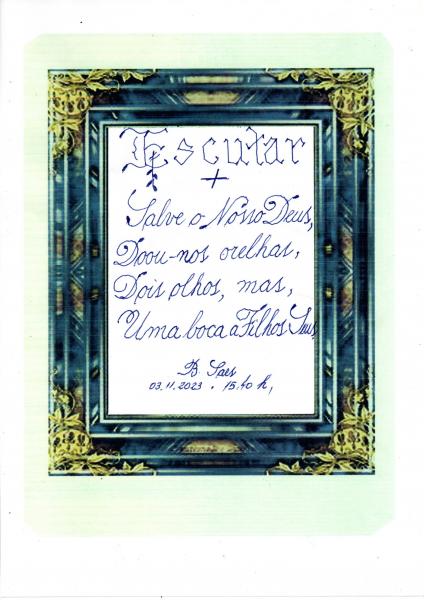 Escutar
+
Salve o Nosso Deus,
Doou-nos orelhas,
Dois olhos, mas,
Uma boca a Filhos Seus,
B. Saes
03.11.2023 . 15:40 h,